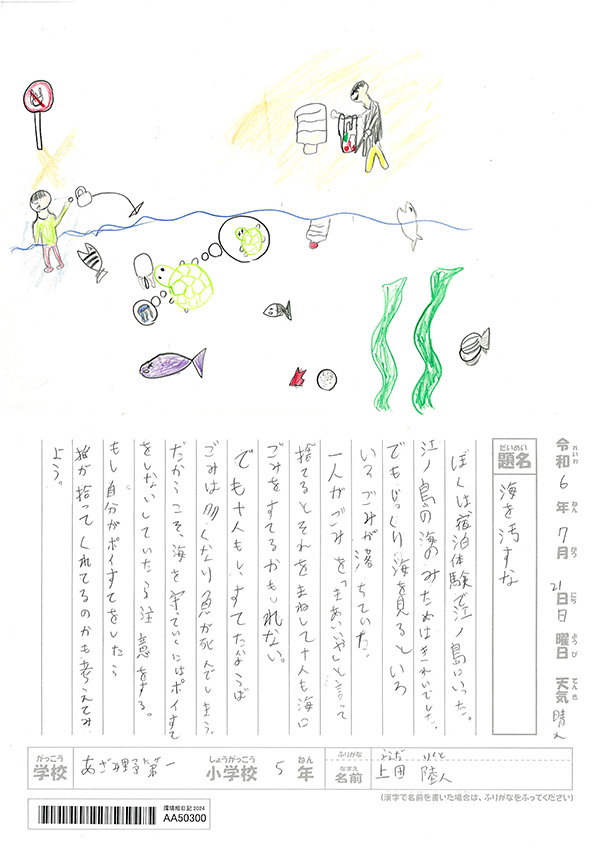 令和6年7月21日日曜日 天気晴れ
れいわ ねん がつ にち ようび てんき
だいめい
題名 海を汚すな
ぼくは宿泊体験で江ノ島にいった。
江ノ島の海のみためはきれいでした。
でもじっくり海を見るといろ
いろごみが落ちていた。
一人がごみを「まあいいや」と言って
捨てるとそれをまねして十人も海に
ごみをすてるかもしれない。
でも十人もしすてたならば
ごみは多くなり魚が死んでしまう。
だからこそ、海を守っていくにはポイすて
をしないしていたら注意をする。
もし自分がポイすてをしたら
誰が拾ってくれてるのかも考えてみ
よう。
がっこう しょうがっこう ねん
学校 あざみ野第一 小学校 5年
ふりがな うえだ りくと
なまえ
名前 上田 陸人
(漢字で名前を書いた場合は、ふりがなをふってください)
環境絵日記2024
AA50300